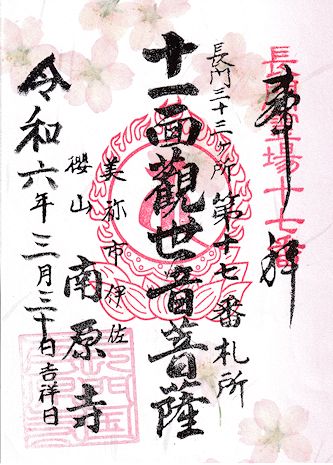 奉拝
長門霊場十七番
長門三十三ヶ所第十七番札所
十一面觀世音菩薩
美祢市伊佐
櫻山 南原寺
令和六年三月三十日吉祥日